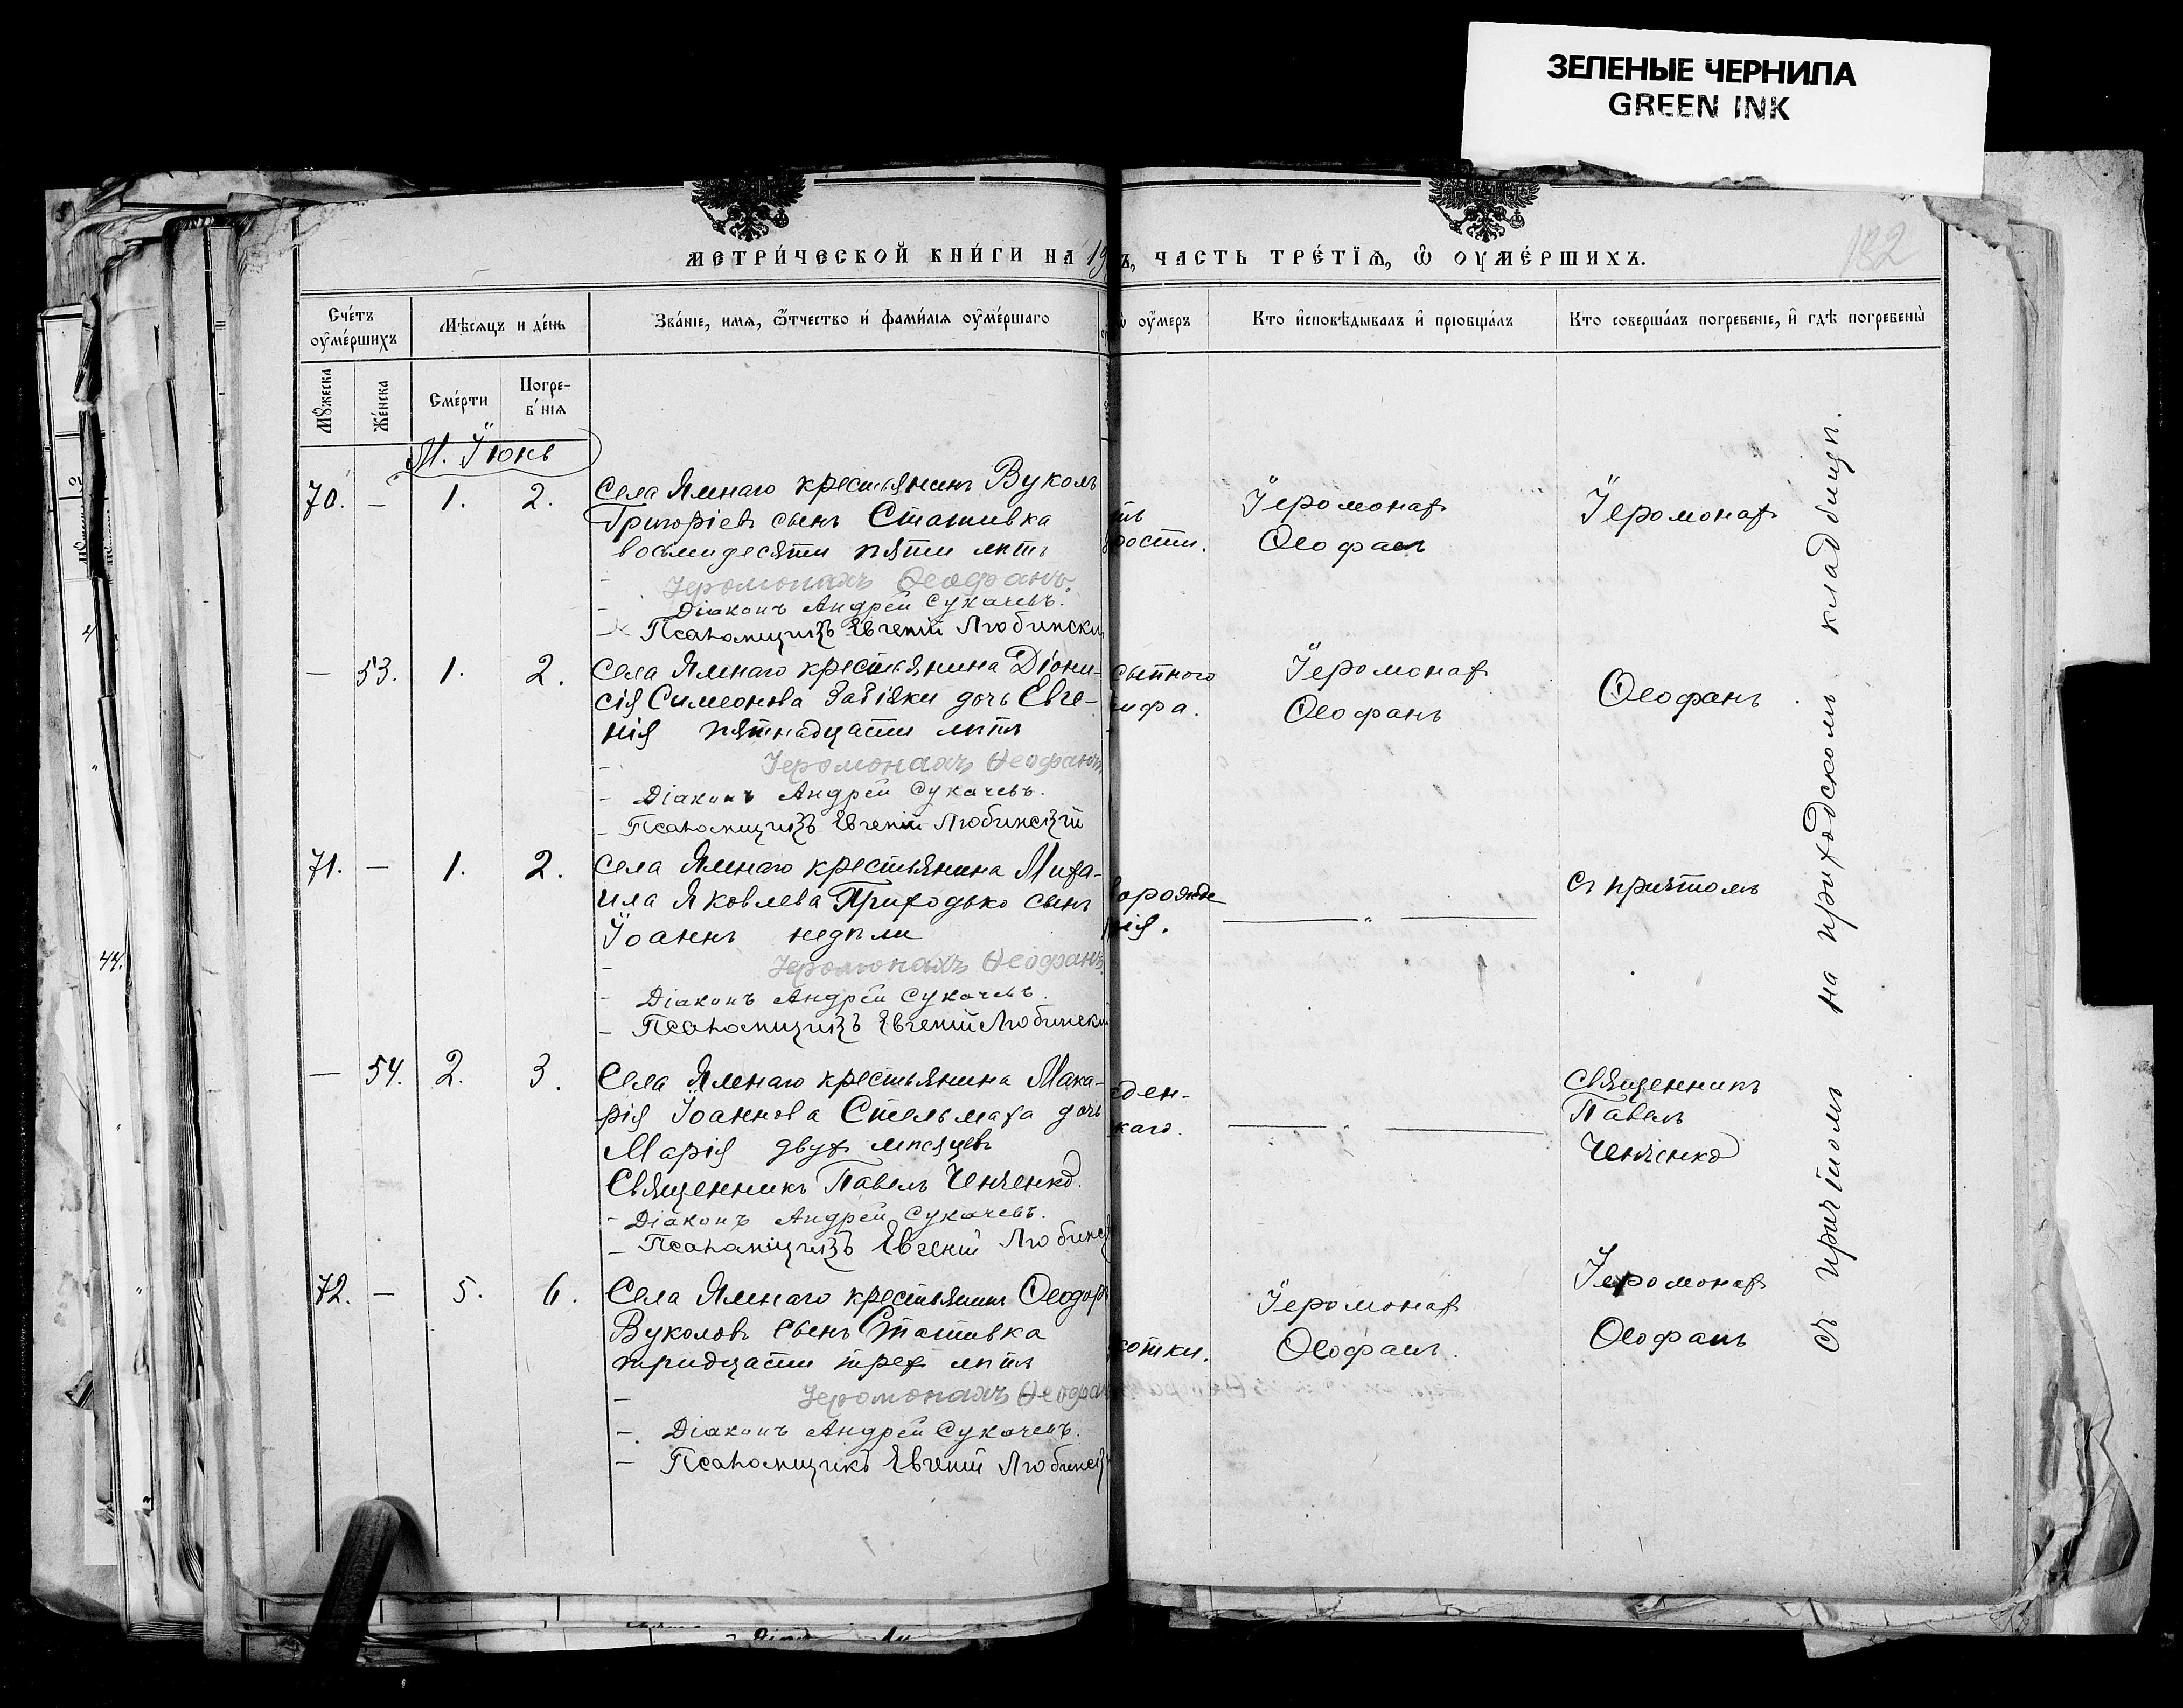 ЗЕЛЕНЫЕ ЧЕРНИЛА
GREEN INK
182
МЕТРИ́ЧЕСКОЙ КНИ́ГИ НА 19
Ъ, ЧАСТЬ ТРЕ́ТЇѦ, Ѽ ОУМЕ́РШИХЪ.
Сче́тъ оуме́ршихъ
Мѣсяцъ и де́нь
Зва́нїе, имѧ, ѿтчество и́ фами́лїѧ оуме́ршаго
оу́меръ
Кто и҆сповѣ́дывалъ и҆ прїобща́лъ
Кто соверша́лъ погребенїе, и҆ гдѣ̀ погребены̀
Мꙋжеска
Же́нска
Сме́рти
Погребе́нїѧ
М. Їюнь
70. — 1. 2.
Села Ямнаго крестьянинъ Вуколъ
Григоріевъ сынъ Стативка
восьмидесяти пяти лѣтъ
Іеромонахъ Ѳеофанъ.
Діаконъ Андрей Сукачевъ.
Псаломщикъ Евгеній Любински
рости.
Їеромонах
Ѳеофан
Їеромонах
— 53. 1. 2.
Села Ямнаго крестьянина Діони-
сія Симеонова Забіяки дочь Евге-
нія пятнадцати лѣтъ
Іеромонахъ Ѳеофанъ
Діаконъ Андрей Сукачевъ.
Псаломщикъ Евгеній Любинскій
сыпного
ифа.
Їеромонах
Ѳеофанъ
Ѳеофанъ
71. — 1. 2.
Села Ямнаго крестьянина Миха-
ила Яковлева Приходько сынъ
Їоаннъ недѣли
Іеромонахъ Ѳеофанъ
Діаконъ Андрей Сукачевъ.
Псаломщикъ Евгеній Любински
орожде
нія.
— " —
съ причтомъ
— 54. 2. 3.
Села Ямнаго крестьянина Мака-
рія Їоаннова Стельмаха дочь
Марія двух мѣсяцевъ
Священникъ Павелъ Ченченко.
Діаконъ Андрей Сукачевъ.
Псаломщикъ Евгеній Любинск
ден-
каго.
— " —
Священникъ
Павелъ
Ченченко
72. — 5. 6.
Села Ямнаго крестьянинъ Ѳеодоръ
Вуколовъ сынъ Стативка
тридцати трех лѣтъ
Іеромонахъ Ѳеофан
Діаконъ Андрей Сукачевъ.
Псаломщикъ Евгеній Любинск
отки.
Їеромонах
Ѳеофанъ.
Їеромонах
Ѳеофанъ
съ причтомъ на приходскомъ кладбищѣ.
44.